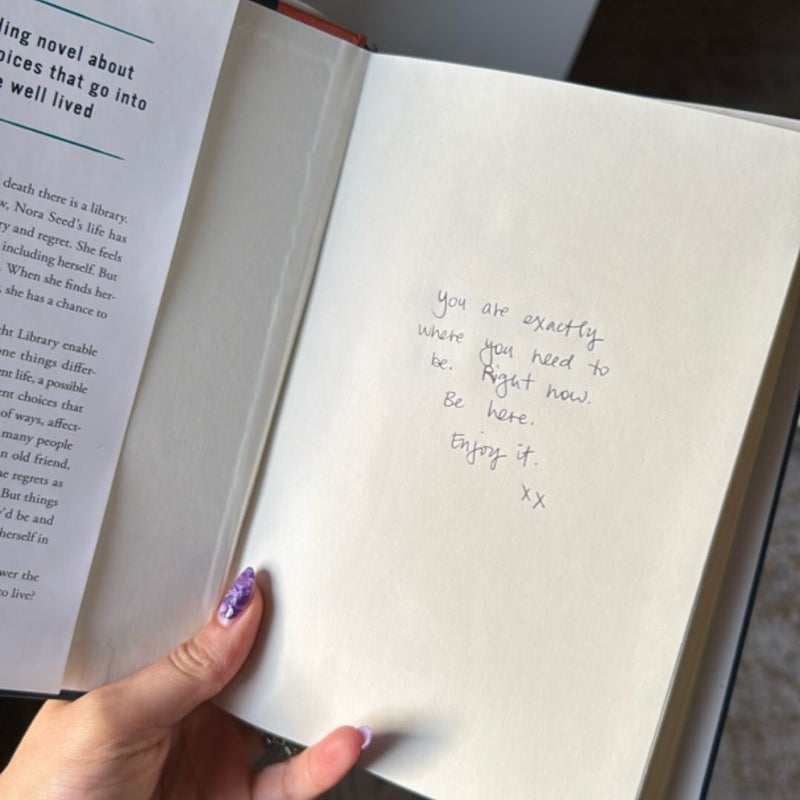 ling novel about
oices that go into
e well lived
death there is a library.
w, Nora Seed's life has
ry and regret. She feels
including herself. But
. When she finds her-
, she has a chance to
ht Library enable
one things differ-
nt life, a possible
ent choices that
of ways, affect-
many people
n old friend,
he regrets as
But things
'd be and
herself in
wer the
to live?
you are exactly
where you need to
be. Right now.
Be here.
Enjoy it.
xx